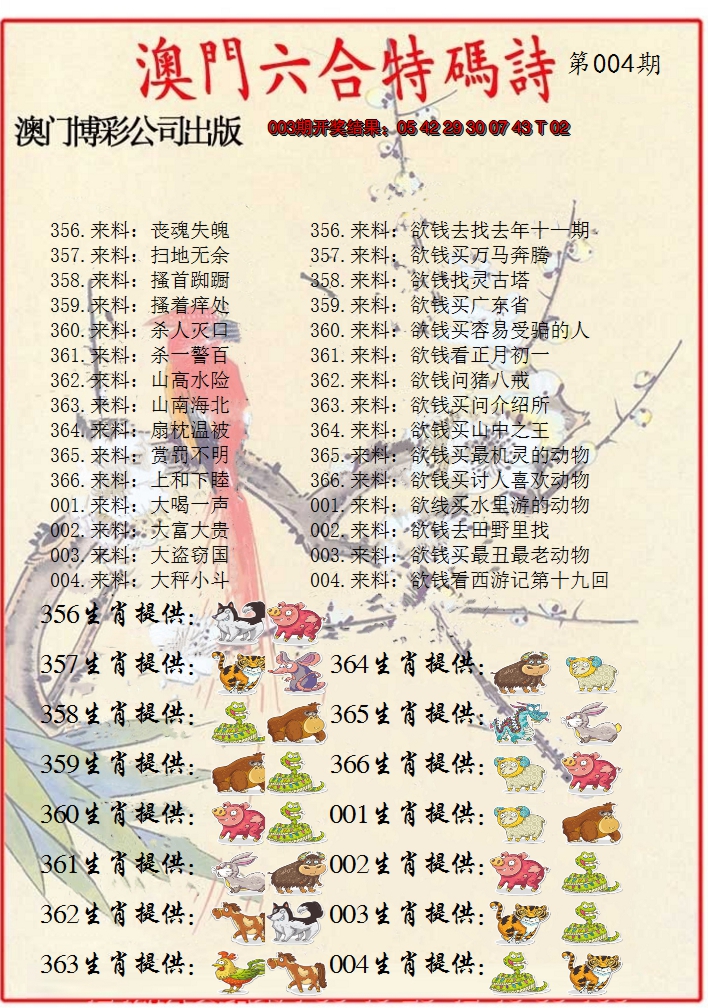 澳門六合特碼詩 第004期
澳门博彩公司出版 003期开奖结果：05 42 29 30 07 43 T 02
356.来料：丧魂失魄 356.来料：欲钱去找去年十一期
357.来料：扫地无余 357.来料：欲钱买万马奔腾
358.来料：搔首踟蹰 358.来料：欲钱找灵古塔
359.来料：搔着痒处 359.来料：欲钱买广东省
360.来料：杀人灭口 360.来料：欲钱买容易受骗的人
361.来料：杀一警百 361.来料：欲钱看正月初一
362.来料：山高水险 362.来料：欲钱问猪八戒
363.来料：山南海北 363.来料：欲钱买问介绍所
364.来料：扇枕温被 364.来料：欲钱买山中之王
365.来料：赏罚不明 365.来料：欲钱买最机灵的动物
366.来料：上和下睦 366.来料：欲钱买讨人喜欢动物
001.来料：大喝一声 001.来料：欲线买水里游的动物
002.来料：大富大贵 002.来料：欲钱去田野里找
003.来料：大盗窃国 003.来料：欲钱买最丑最老动物
004.来料：大秤小斗 004.来料：欲钱看西游记第十九回
356生肖提供：
357生肖提供： 364生肖提供：
358生肖提供： 365生肖提供：
359生肖提供： 366生肖提供：
360生肖提供： 001生肖提供：
361生肖提供： 002生肖提供：
362生肖提供： 003生肖提供：
363生肖提供： 004生肖提供：